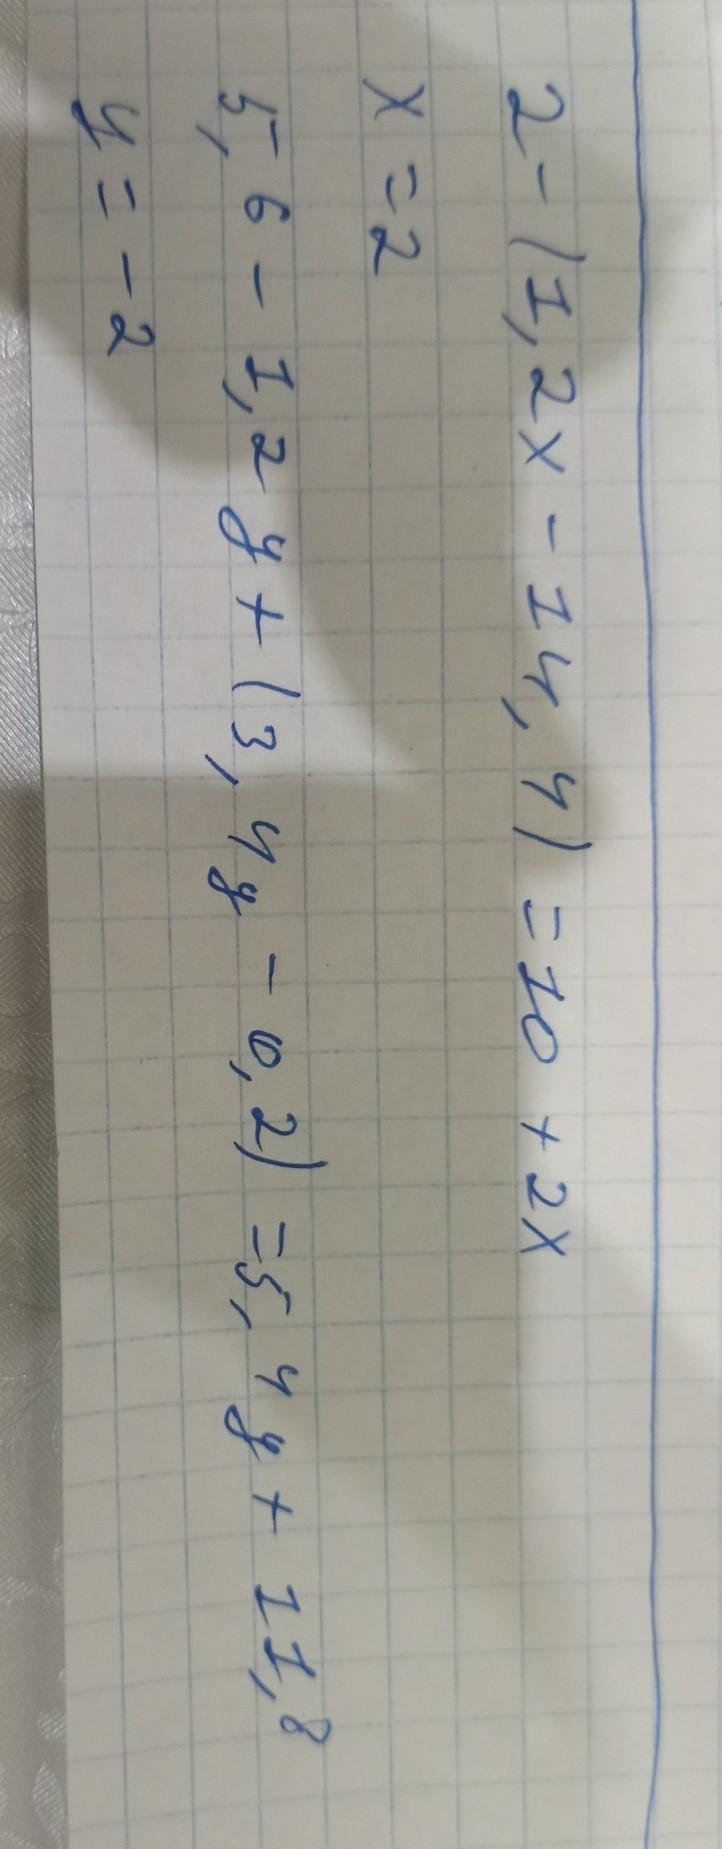 2-(1,2x-14,4)=10+2x
x=2
5,6-1,2y+(3,4y-0,2)=5,4y+11,8
y=-2